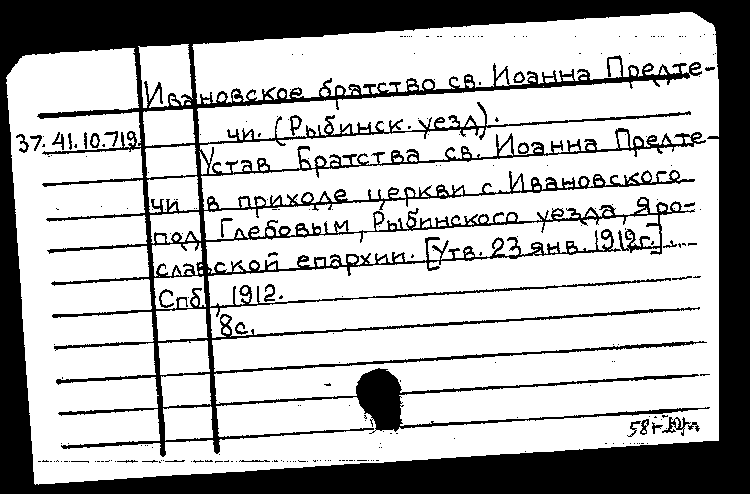 Ивановское братство св. Иоанна Предте-
чи. (Рыбинск. уезд).
37.41.10.719.
Устав Братства св. Иоанна Предте-
чи в приходе церкви с. Ивановского
под Глебовым, Рыбинского уезда, Яро-
славской епархии. [Утв. 23 янв. 1912г.]
Спб., 1912.
8с.